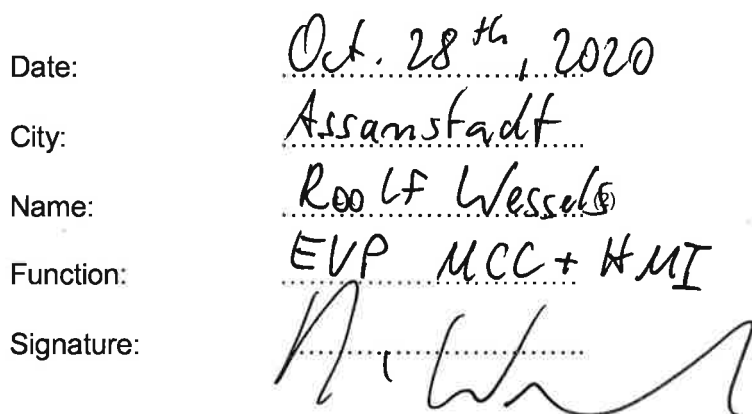 Date: Oct. 28th, 2020
City: Assamstadt
Name: Roolf Wessels
Function: EVP MCC + HMI
Signature: